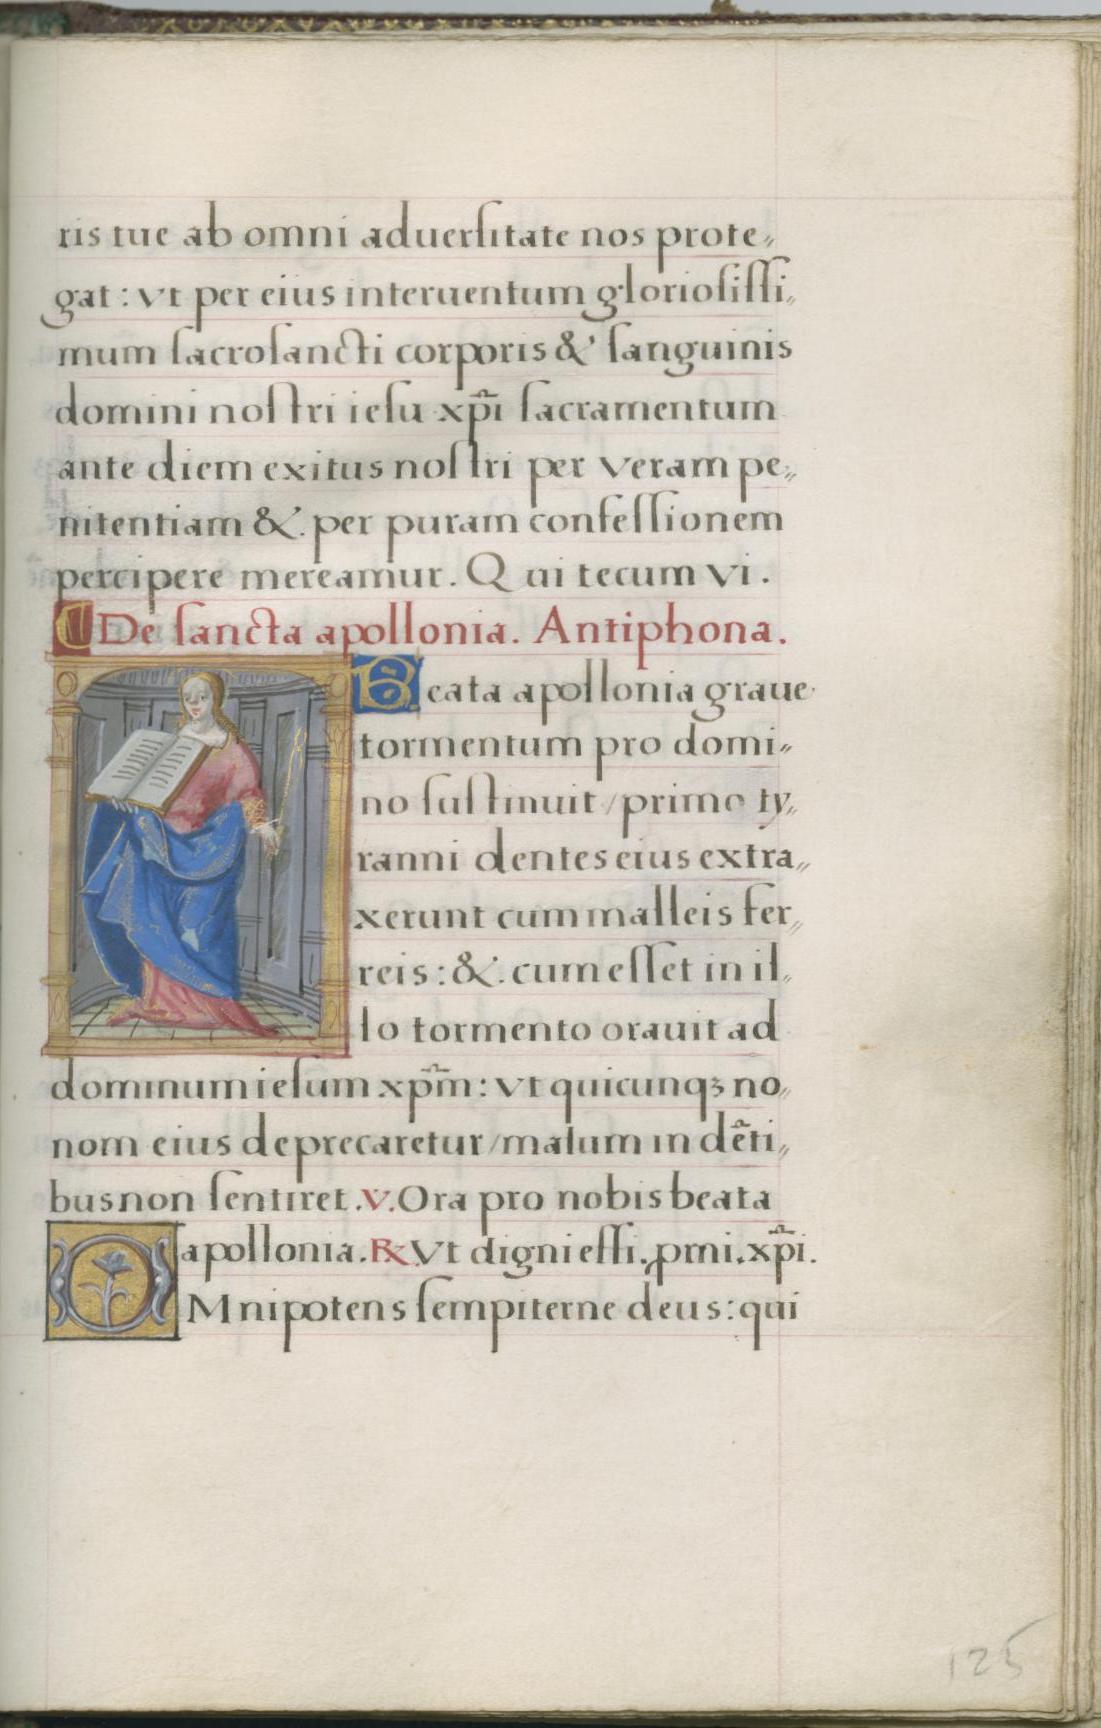 ris tue ab omni aduerſitate nos prote,,
gat : vt per eius interuentum glorioſiſſi,,
mum ſacroſancti corporis & ſanguinis
domini noſtri ieſu xp̃i ſacramentum
ante diem exitus noſtri per veram pe,,
nitentiam &. per puram confeſſionem
percipere mereamur. Qui tecum vi.
De ſancta apollonia. Antiphona.
Beata apollonia graue
tormentum pro domi,,
no ſuſtinuit / primo ty,,
ranni dentes eius extra,,
xerunt cum malleis fer,,
reis : &. cum eſſet in il,,
lo tormento orauit ad
dominum ieſum xp̃m : vt quicunqꝫ no,,
nom eius deprecaretur / malum in dẽti,,
bus non ſentiret. V. Ora pro nobis beata
apollonia. ℞ Vt digni eſſi. ꝓmi. xp̃i.
OMnipotens ſempiterne deus : qui
125